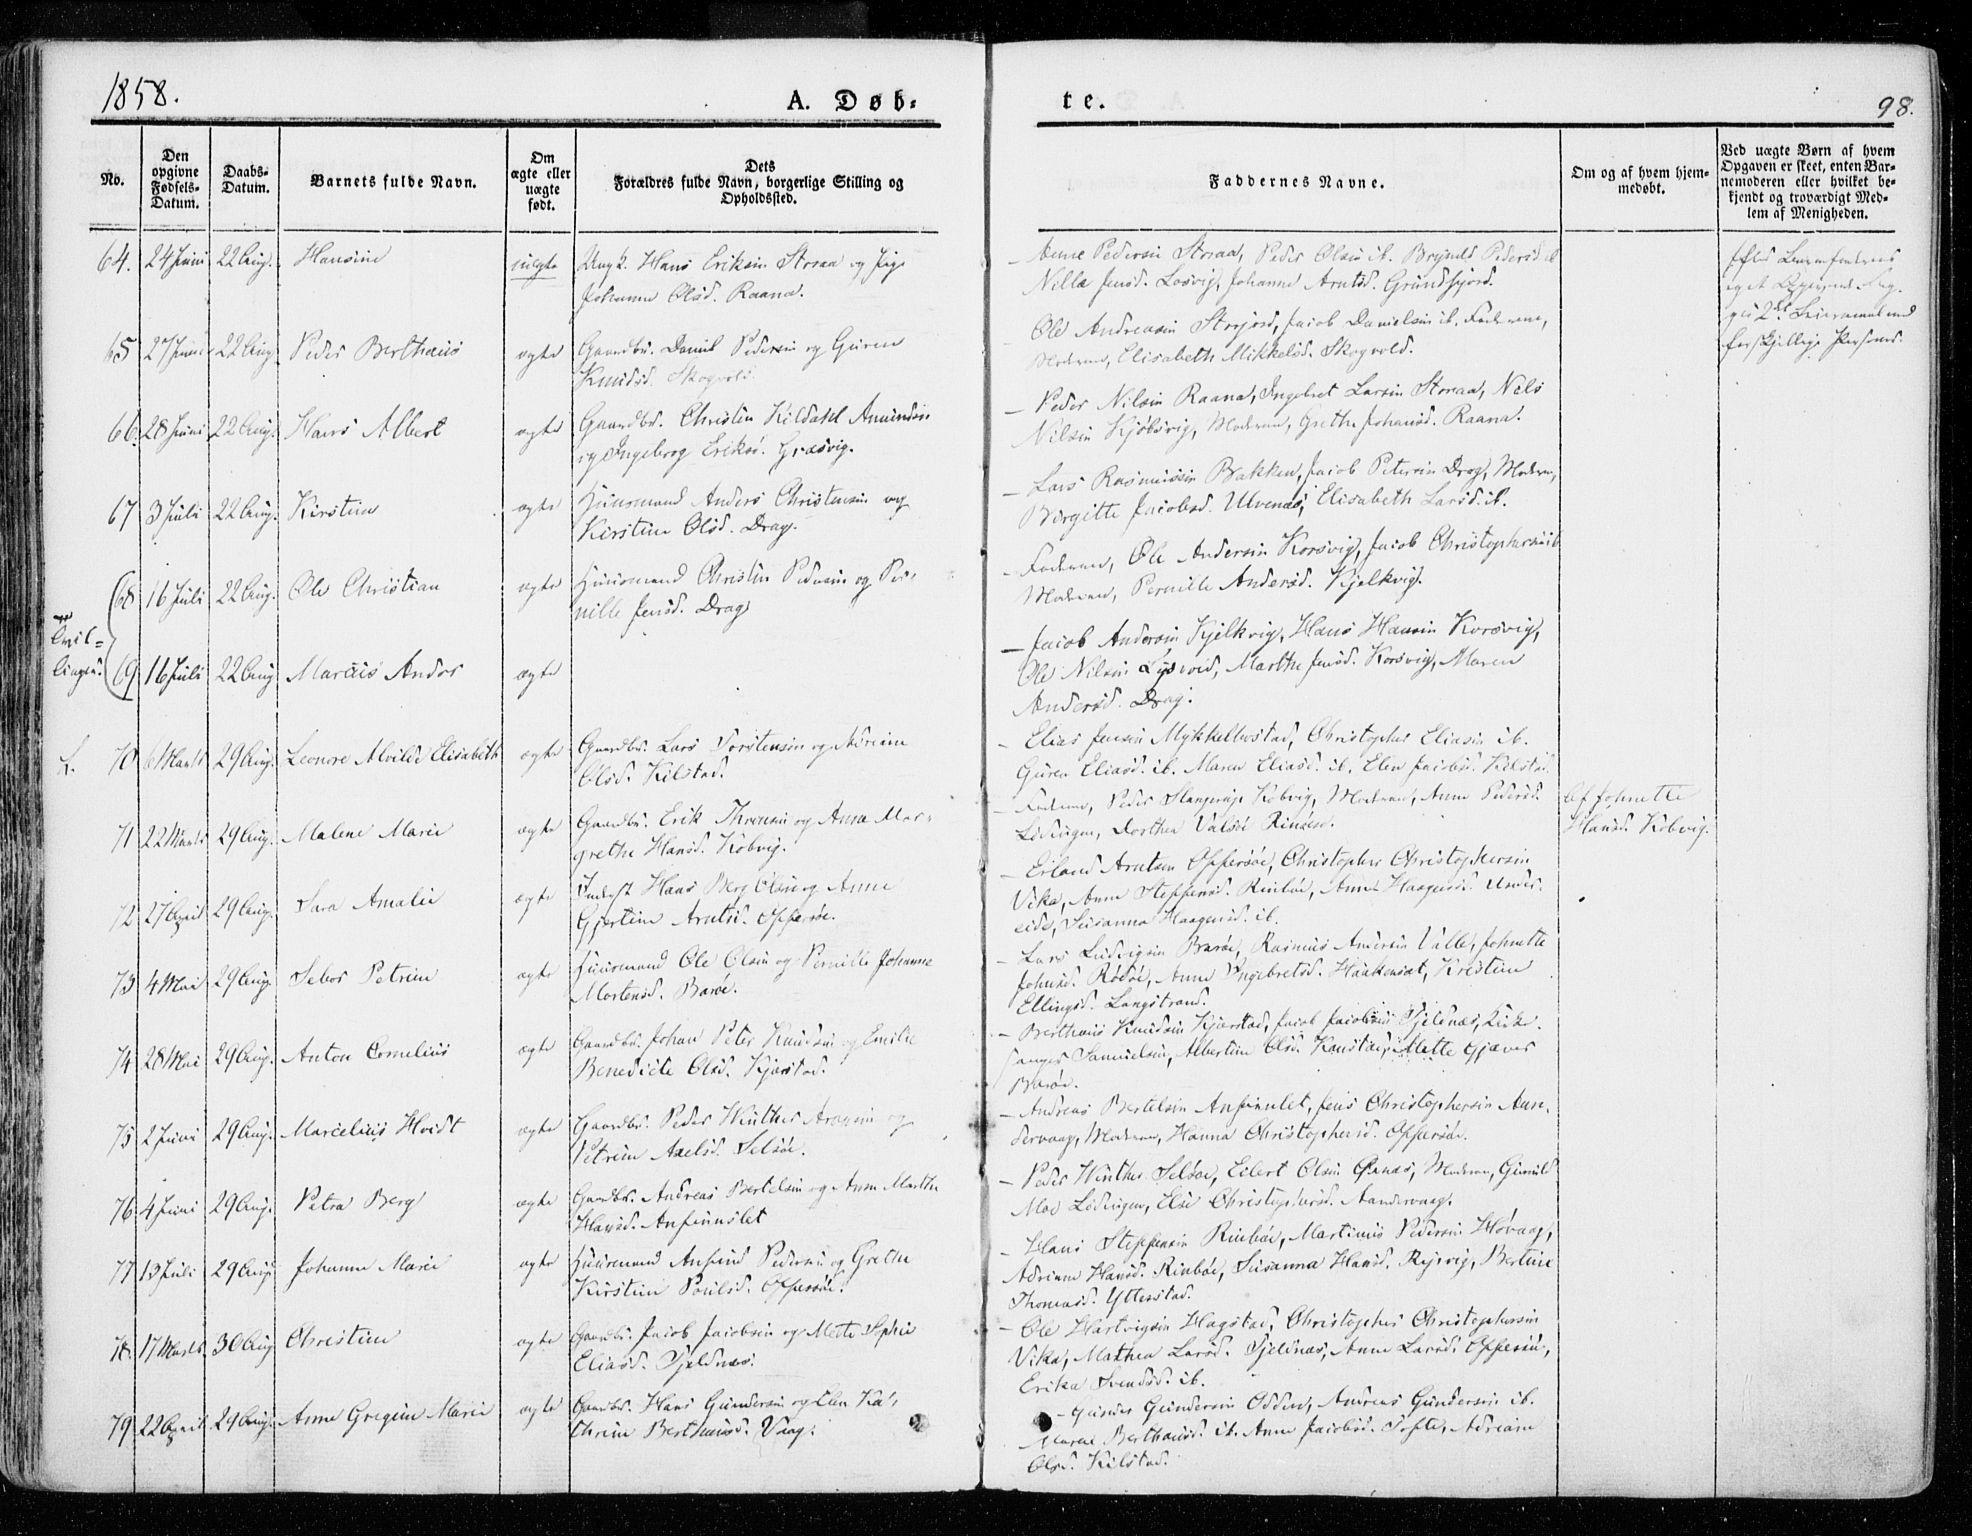 1858.
A. Døb-
te.
98.
No.
Den opgivne Fødsels-Datum.
Daabs-Datum.
Barnets fulde Navn.
Om ægte eller uægte født.
Dets Forældres fulde Navn, borgerlige Stilling og Opholdssted.
Faddernes Navne.
Om og af hvem hjem-medøbt.
Ved uægte Børn af hvem Opgaven er skeet, enten Bar-nemoderen eller hvilket be-kjendt og troværdigt Med-lem af Menigheden.
64. 24 Juni 22 Aug. Hansine uægte Ungk. Hans Eriksen Storaa og Pige
Johanna Olsd. Raana.
Anne Pedersen Storaa, Peder Olsen ib. Brynild Pedersd ib
Nille Jensd. Losvig, Johanna Arntsd. Grundfjord.
2det Leiermaal med
forskjellige Personer.
65 27 Juni 22 Aug Peder Berthæus ægte Gaardbr. Daniel Pedersen og Guren
Knudsd. Skogvold
Ole Andreasen Storjord, Jacob Danielsen ib. Faderen,
Moderen, Elisabeth Mikkelsd. Skogvold.
66. 28 Juni 22 Aug. Hans Albert ægte Gaardbr. Christen Kildahl Amundsen
og Ingeborg Eriksd. Græsvig.
– Peder Nilsen Raana, Ingebret Larsen Storaa, Nils
Nilsen Kjøbsvig, Moderen, Grethe Johansd. Raana.
67 3 Juli 22 Aug. Kirstine ægte Huusmand Anders Christensen og
Kirstine Olsd. Drag.
– Lars Rasmussen Bakken, Jacob Petersen Drag, Moderen,
Birgitte Jacobsd. Ulvenæs, Elisabeth Larsd. ib.
68 16 Juli 22 Aug. Ole Christian ægte Huusmand Christen Pedersen og Per-
nille Jensd. Drag
– Faderen, Ole Andersen Korsvig, Jacob Christophersen ib
Moderen, Pernille Andersd. Kjelkvig.
Tvil-
linger.
69 16 Juli 22 Aug Marcus Andor ægte
– Jacob Andersen Kjelkvig, Hans Hansen Korsvig,
Ole Nilsen Lysvold, Marthe Jensd. Korsvig, Maren
Andersd. Drag.
70 6 Marts 29 Aug. Leonore Alvilde Elisabeth ægte Gaardbr. Lars Torstensen og Adriane
Olsd. Kilstad.
– Elias Jensen Mykkelbostad, Christopher Eliasen ib.
Guren Eliasd. ib. Maren Eliasd. ib. Elen Jacobsd. Kilstad
71 22 Marts 29 Aug. Malene Marie ægte Gaardbr. Erik Thomsen og Anna Mar-
grethe Hansd. Kobvig.
– Faderen, Peder Slangerup Kobvig, Moderen, Anne Pedersd.
Lødingen, Dorthea Valsøe Rinbøe.
Af Johnette
Hansd. Kobvig.
72 27 April 29 Aug. Sara Amalie ægte Inderst Hans Berg Olsen og Anne
Gjertine Arntsd. Offersøe.
– Erland Arntsen Offersøe, Christopher Christophersen
Vika, Anne Steffensd. Rinbøe, Anne Haagensd. Under-
eide, Susanna Haagensd. ib.
73 4 Mai 29 Aug. Sebor Petrine ægte Huusmand Ole Olsen og Pernille Johanna
Mortensd. Barøe.
– Lars Ludvigsen Barøe, Rasmus Andersen Valle, Johnette
Johnsd. Rødøe, Anne Ingebretsd. Haakensat, Kristine
Ellingsd. Langstrand.
74 28 Mai 29 Aug. Anton Cornelius ægte Gaardbr. Johan Peter Knudsen og Emilie
Benedicte Olsd. Kjærstad.
– Berthæus Knudsen Kjærstad, Jacob Jacobsen Tjeldnæs, Kirke-
sanger Samuelsen, Albertine Olsd. Kanstad, Mette Gjæver
Barøe.
75 2 Juni 29 Aug. Marcelius Hvidt ægte Gaardbr. Peder Winther Aragsen og
Petrine Axelsd. Selsøe.
– Andreas Bertelsen Anfinnslet, Jens Christophersen Aun-
dervaag, Moderen, Hanna Christophersd. Offersøe.
76 4 Juni 29 Aug. Petra Berg ægte Gaardbr. Andreas Bertelsen og Anne Marthe
Hansd. Anfinnslet
– Peder Winther Selsøe, Eilert Olsen Øxnæs, Moderen, Gunild
Moe Lødingen, Else Christophersd. Aandervaag.
77 13 Juli 29 Aug. Johanne Marie ægte Huusmand Anfind Pedersen og Grethe
Kirstine Poulsd. Offersøe.
– Hans Steffensen Rinbøe, Martinus Pedersen Høvaag,
Adriane Hansd. Rinbøe, Susanna Hansd. Rejsvig, Bertine
Thomasd. Ytterstad.
78. 17 Marts 30 Aug Christine ægte Gaardbr. Jacob Jacobsen og Mette Sophie
Eliasd. Tjeldnæs.
– Ole Hartvigsen Hagstad, Christopher Christophersen
Vika, Mathea Larsd. Tjeldnæs, Anne Larsd. Offersøe,
Erika Svendsd. ib.
79 22 April 29 Aug. Anne Gregine Marie ægte Gaardbr. Hans Gundersen og Elen Ka-
thrine Berthæusd. Vaag.
– Gunder Gundersen Odden, Andreas Gundersen ib.
Maren Berthæusd. ib. Anne Jacobsd. Tofte, Adriane
Olsd. Kilstad.